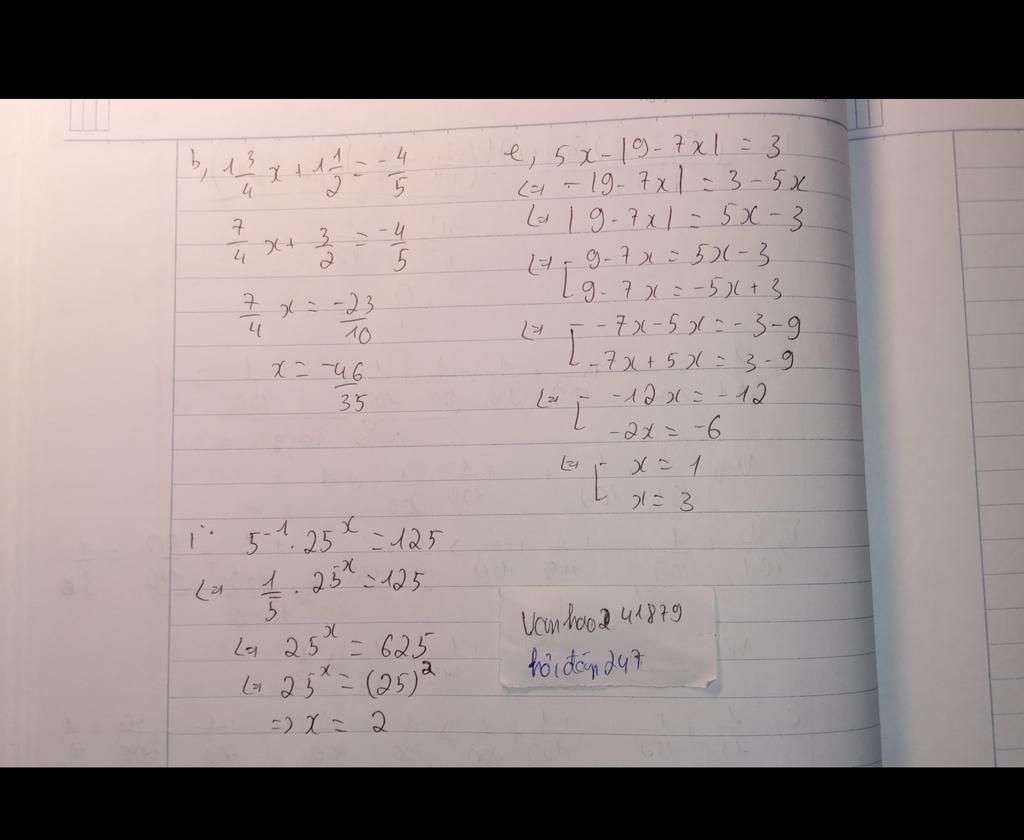 b, 1 3/4 x + 1 1/2 = -4/5
7/4 x + 3/2 = -4/5
7/4 x = -23/10
x = -46/35
e, 5x - |9 - 7x| = 3
<=> -|9 - 7x| = 3 - 5x
<=> |9 - 7x| = 5x - 3
<=> [ 9 - 7x = 5x - 3
9 - 7x = -5x + 3
<=> [ -7x - 5x = -3 - 9
-7x + 5x = 3 - 9
<=> [ -12x = -12
-2x = -6
<=> [ x = 1
x = 3
i: 5^-1 . 25^x = 125
<=> 1/5 . 25^x = 125
<=> 25^x = 625
<=> 25^x = (25)^2
=> x = 2
Vanhao241879
hỏi đáp 247